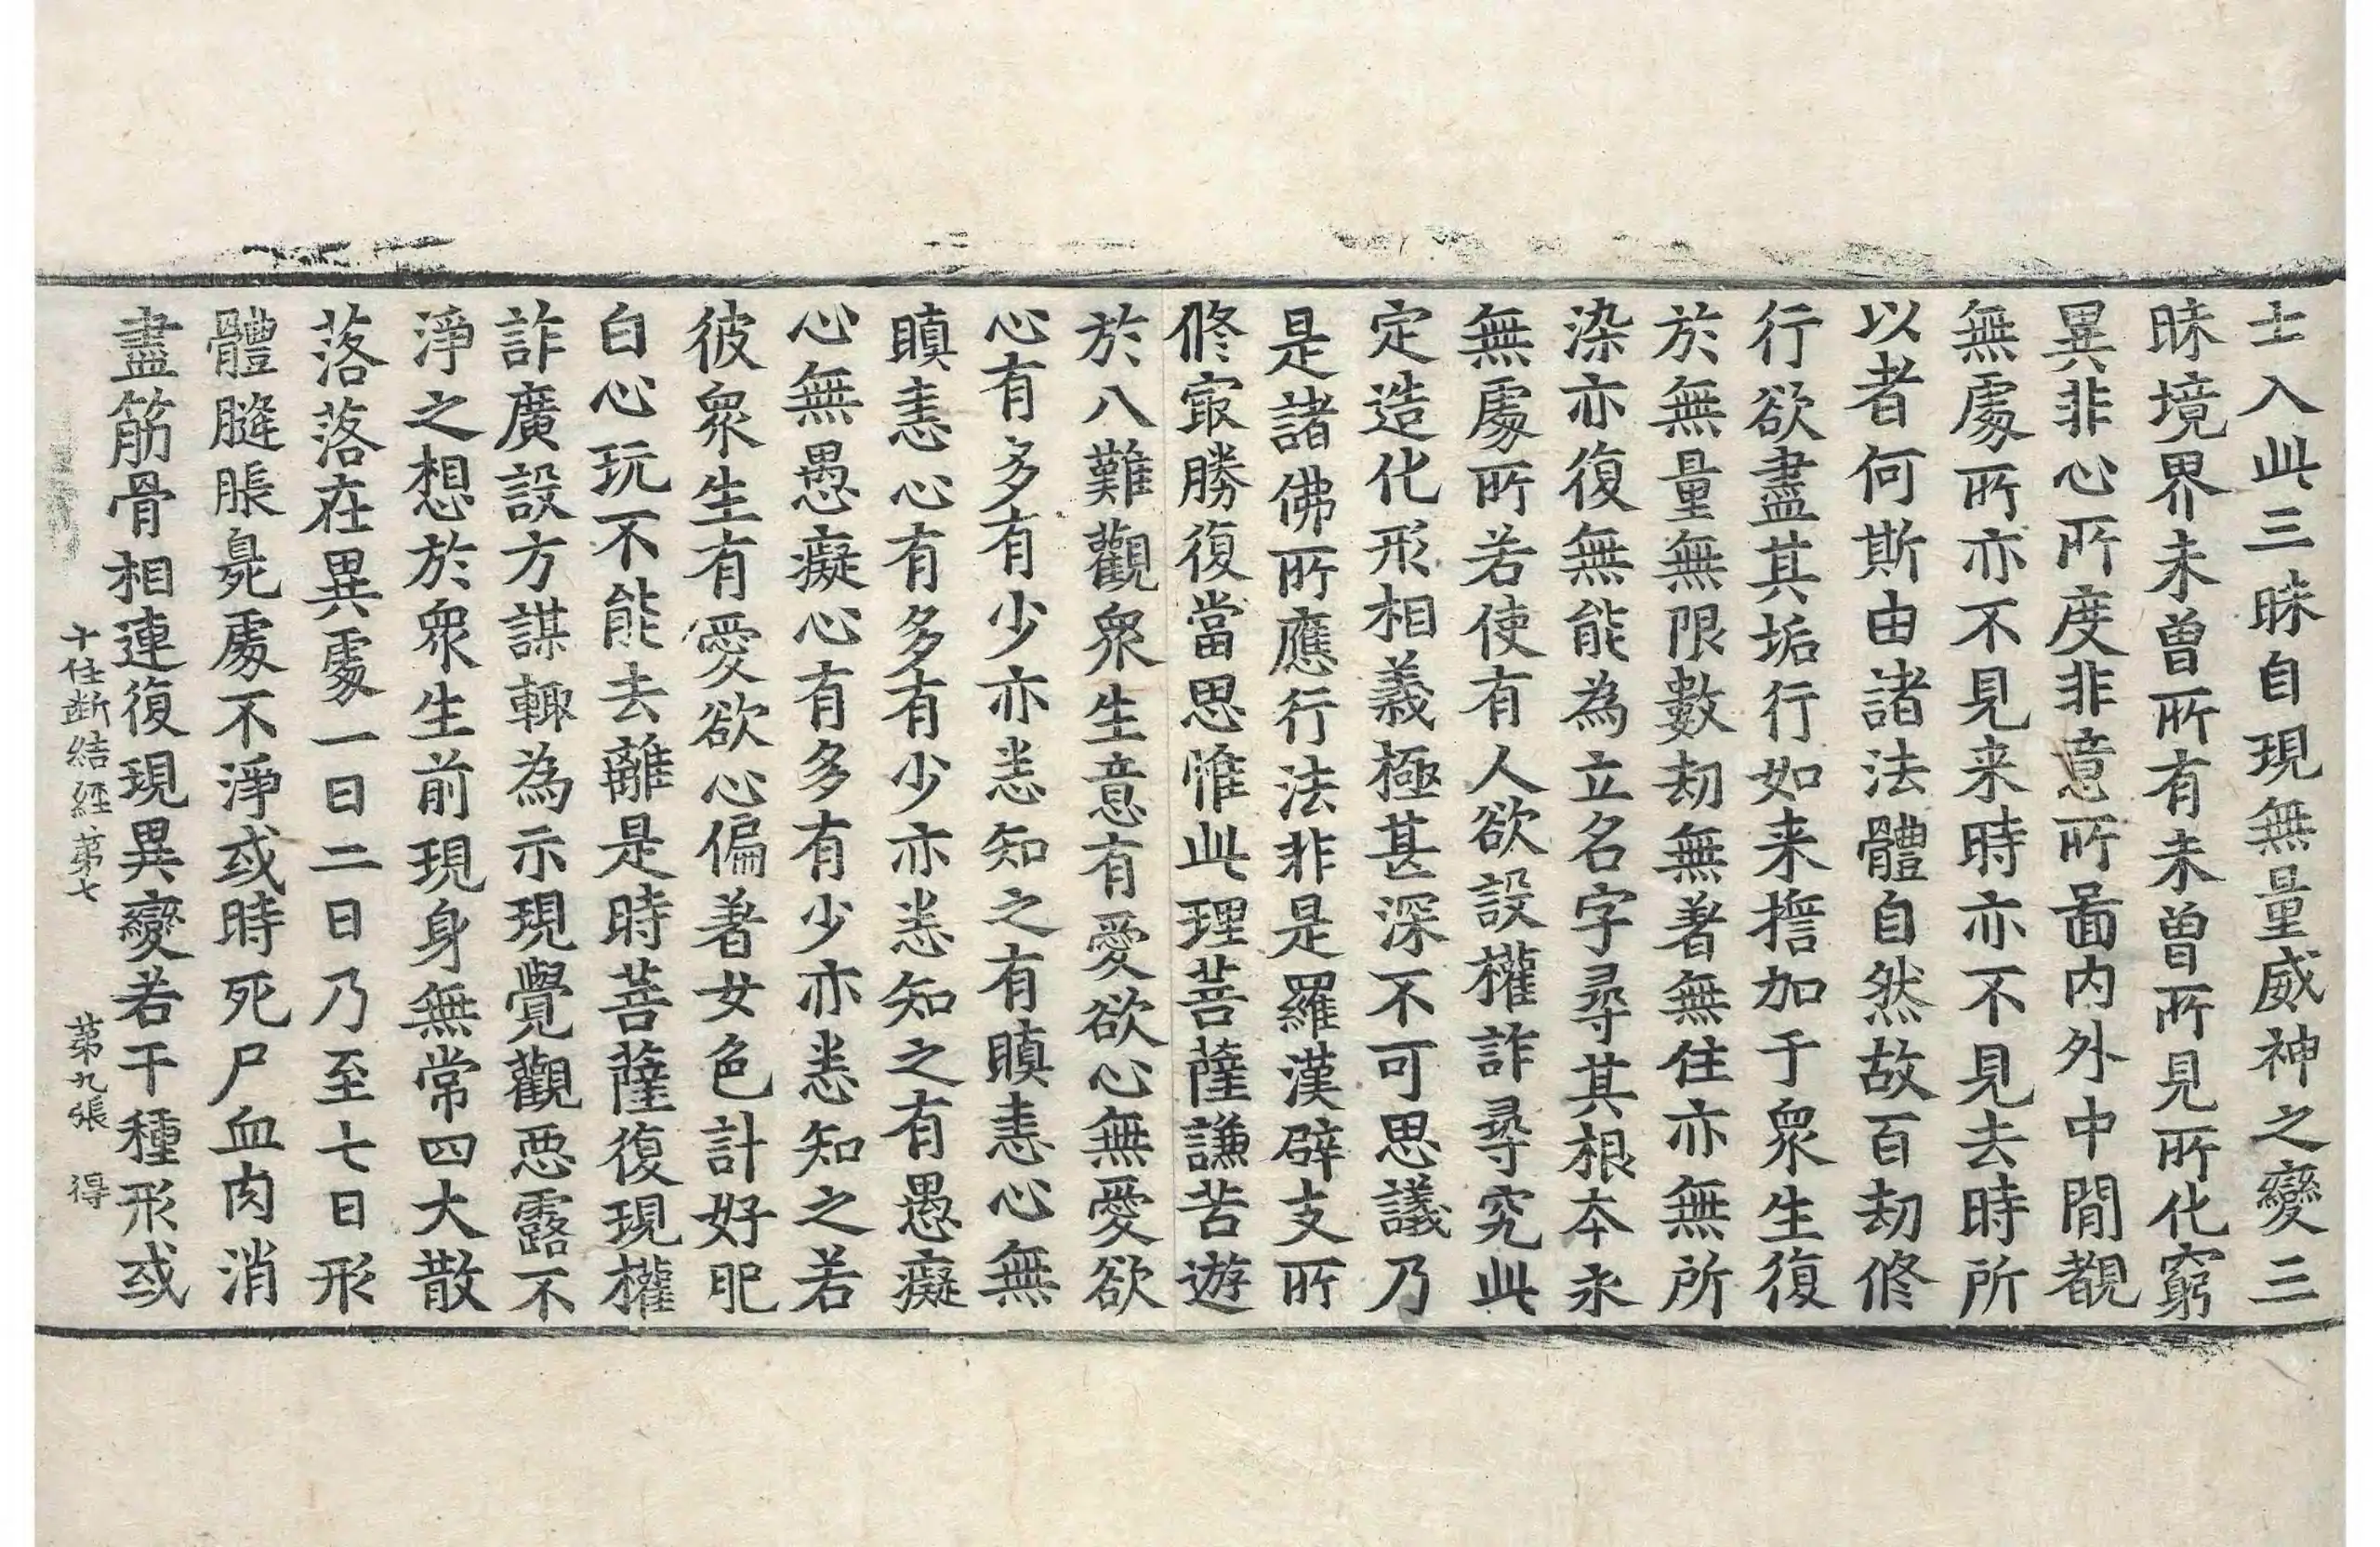 士入此三昧自現無量威神之變三
昧境界未曾所有未曾所見所化窮
異非心所度非意所啚內外中閒觀
無處所亦不見来時亦不見去時所
以者何斯由諸法體自然故百劫修
行欲盡其垢行如来擔加于衆生復
於無量無限數劫無著無住亦無所
染亦復無能為立名字尋其根本永
無處所若使有人欲設權詐尋究此
定造化形相義極甚深不可思議乃
是諸佛所應行法非是羅漢辟支所
修冣勝復當思惟此理菩薩謙苦遊
於八難觀衆生意有愛欲心無愛欲
心有多有少亦悉知之有瞋恚心無
瞋恚心有多有少亦悉知之有愚癡
心無愚癡心有多有少亦悉知之若
彼衆生有愛欲心偏著女色計好肥
白心玩不能去離是時菩薩復現權
詐廣設方謀輙為示現覺觀惡露不
淨之想於衆生前現身無常四大散
落落在異處一日二日乃至七日形
體膖脹臰處不淨或時死尸血肉消
盡筋骨相連復現異變若干種形或
十住斷結經第七 第九張 得